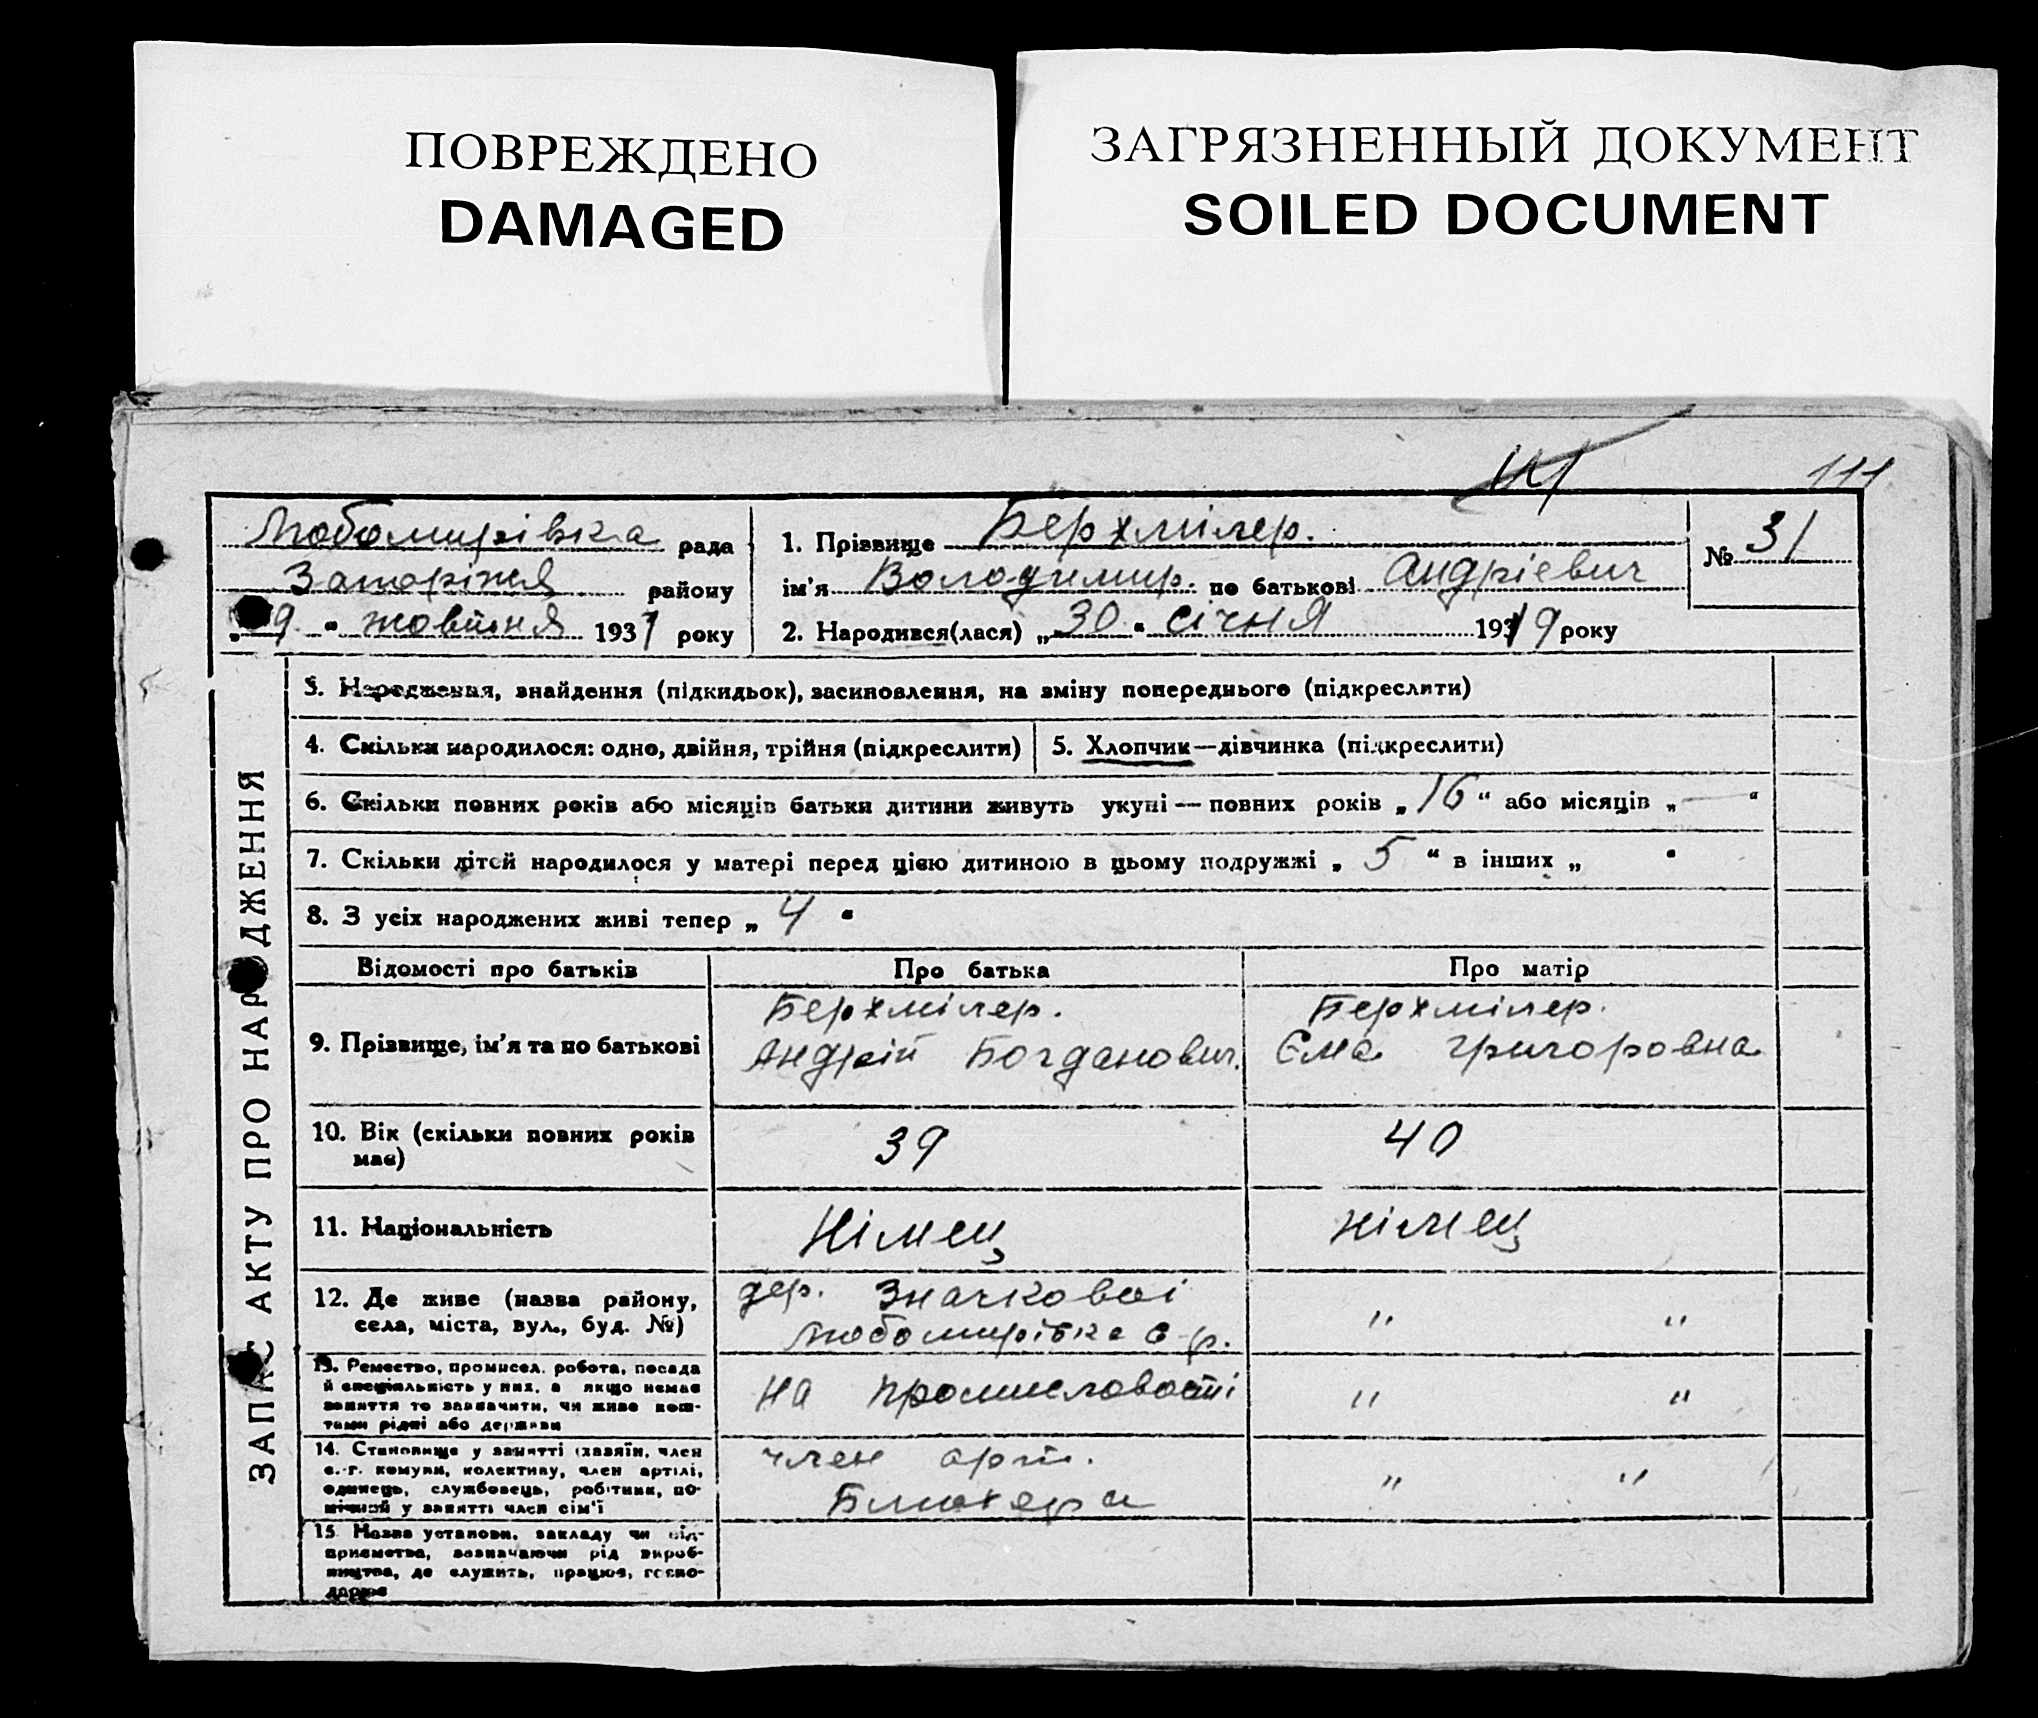 ПОВРЕЖДЕНО
DAMAGED
ЗАГРЯЗНЕННЫЙ ДОКУМЕНТ
SOILED DOCUMENT
111
111
Любомирівка рада
Запоріжжя району
„ 9 “ жовтня 1931 року
1. Прізвище Берхмілер.
ім'я Володимир. по батькові Андрієвич
2. Народився(лася) „30“ січня 1919 року
№ 31
ЗАПИС АКТУ ПРО НАРОДЖЕННЯ
3. Народження, знайдення (підкидьок), засиновлення, на зміну попереднього (підкреслити)
4. Скільки народилося: одно, двійня, трійня (підкреслити)
5. Хлопчик—дівчинка (підкреслити)
6. Скільки повних років або місяців батьки дитини живуть укупі — повних років „16“ або місяців „—“
7. Скільки дітей народилося у матері перед цією дитиною в цьому подружжі „ 5 “ в інших „ “
8. З усіх народжених живі тепер „ 4 “
Відомості про батьків
Про батька
Про матір
9. Прізвище, ім'я та по батькові
Берхмілер.
Андрій Богданович.
Берхмілер.
Єма Григоровна
10. Вік (скільки повних років
має)
39
40
11. Національність
Німец
німец
12. Де живе (назва району,
села, міста, вул., буд. №)
дер.
Любомирівка с-р.
" "
13. Ремество, промисел, робота, посада
й спеціяльність у них, а якщо немає
заняття то зазначити, чи живе кош-
тами рідні або держави
на промисловості
" "
14. Становище у занятті (хазяїн, член
с.-г. комуни, колективу, член артілі,
одинець, службовець, робітник, по-
мічний у занятті член сім'ї
член арт.
Блюхера
" "
15. Назва установи, закладу чи під-
приємства, зазначаючи рід вироб-
ництва, де служить, працює, госпо-
дарює